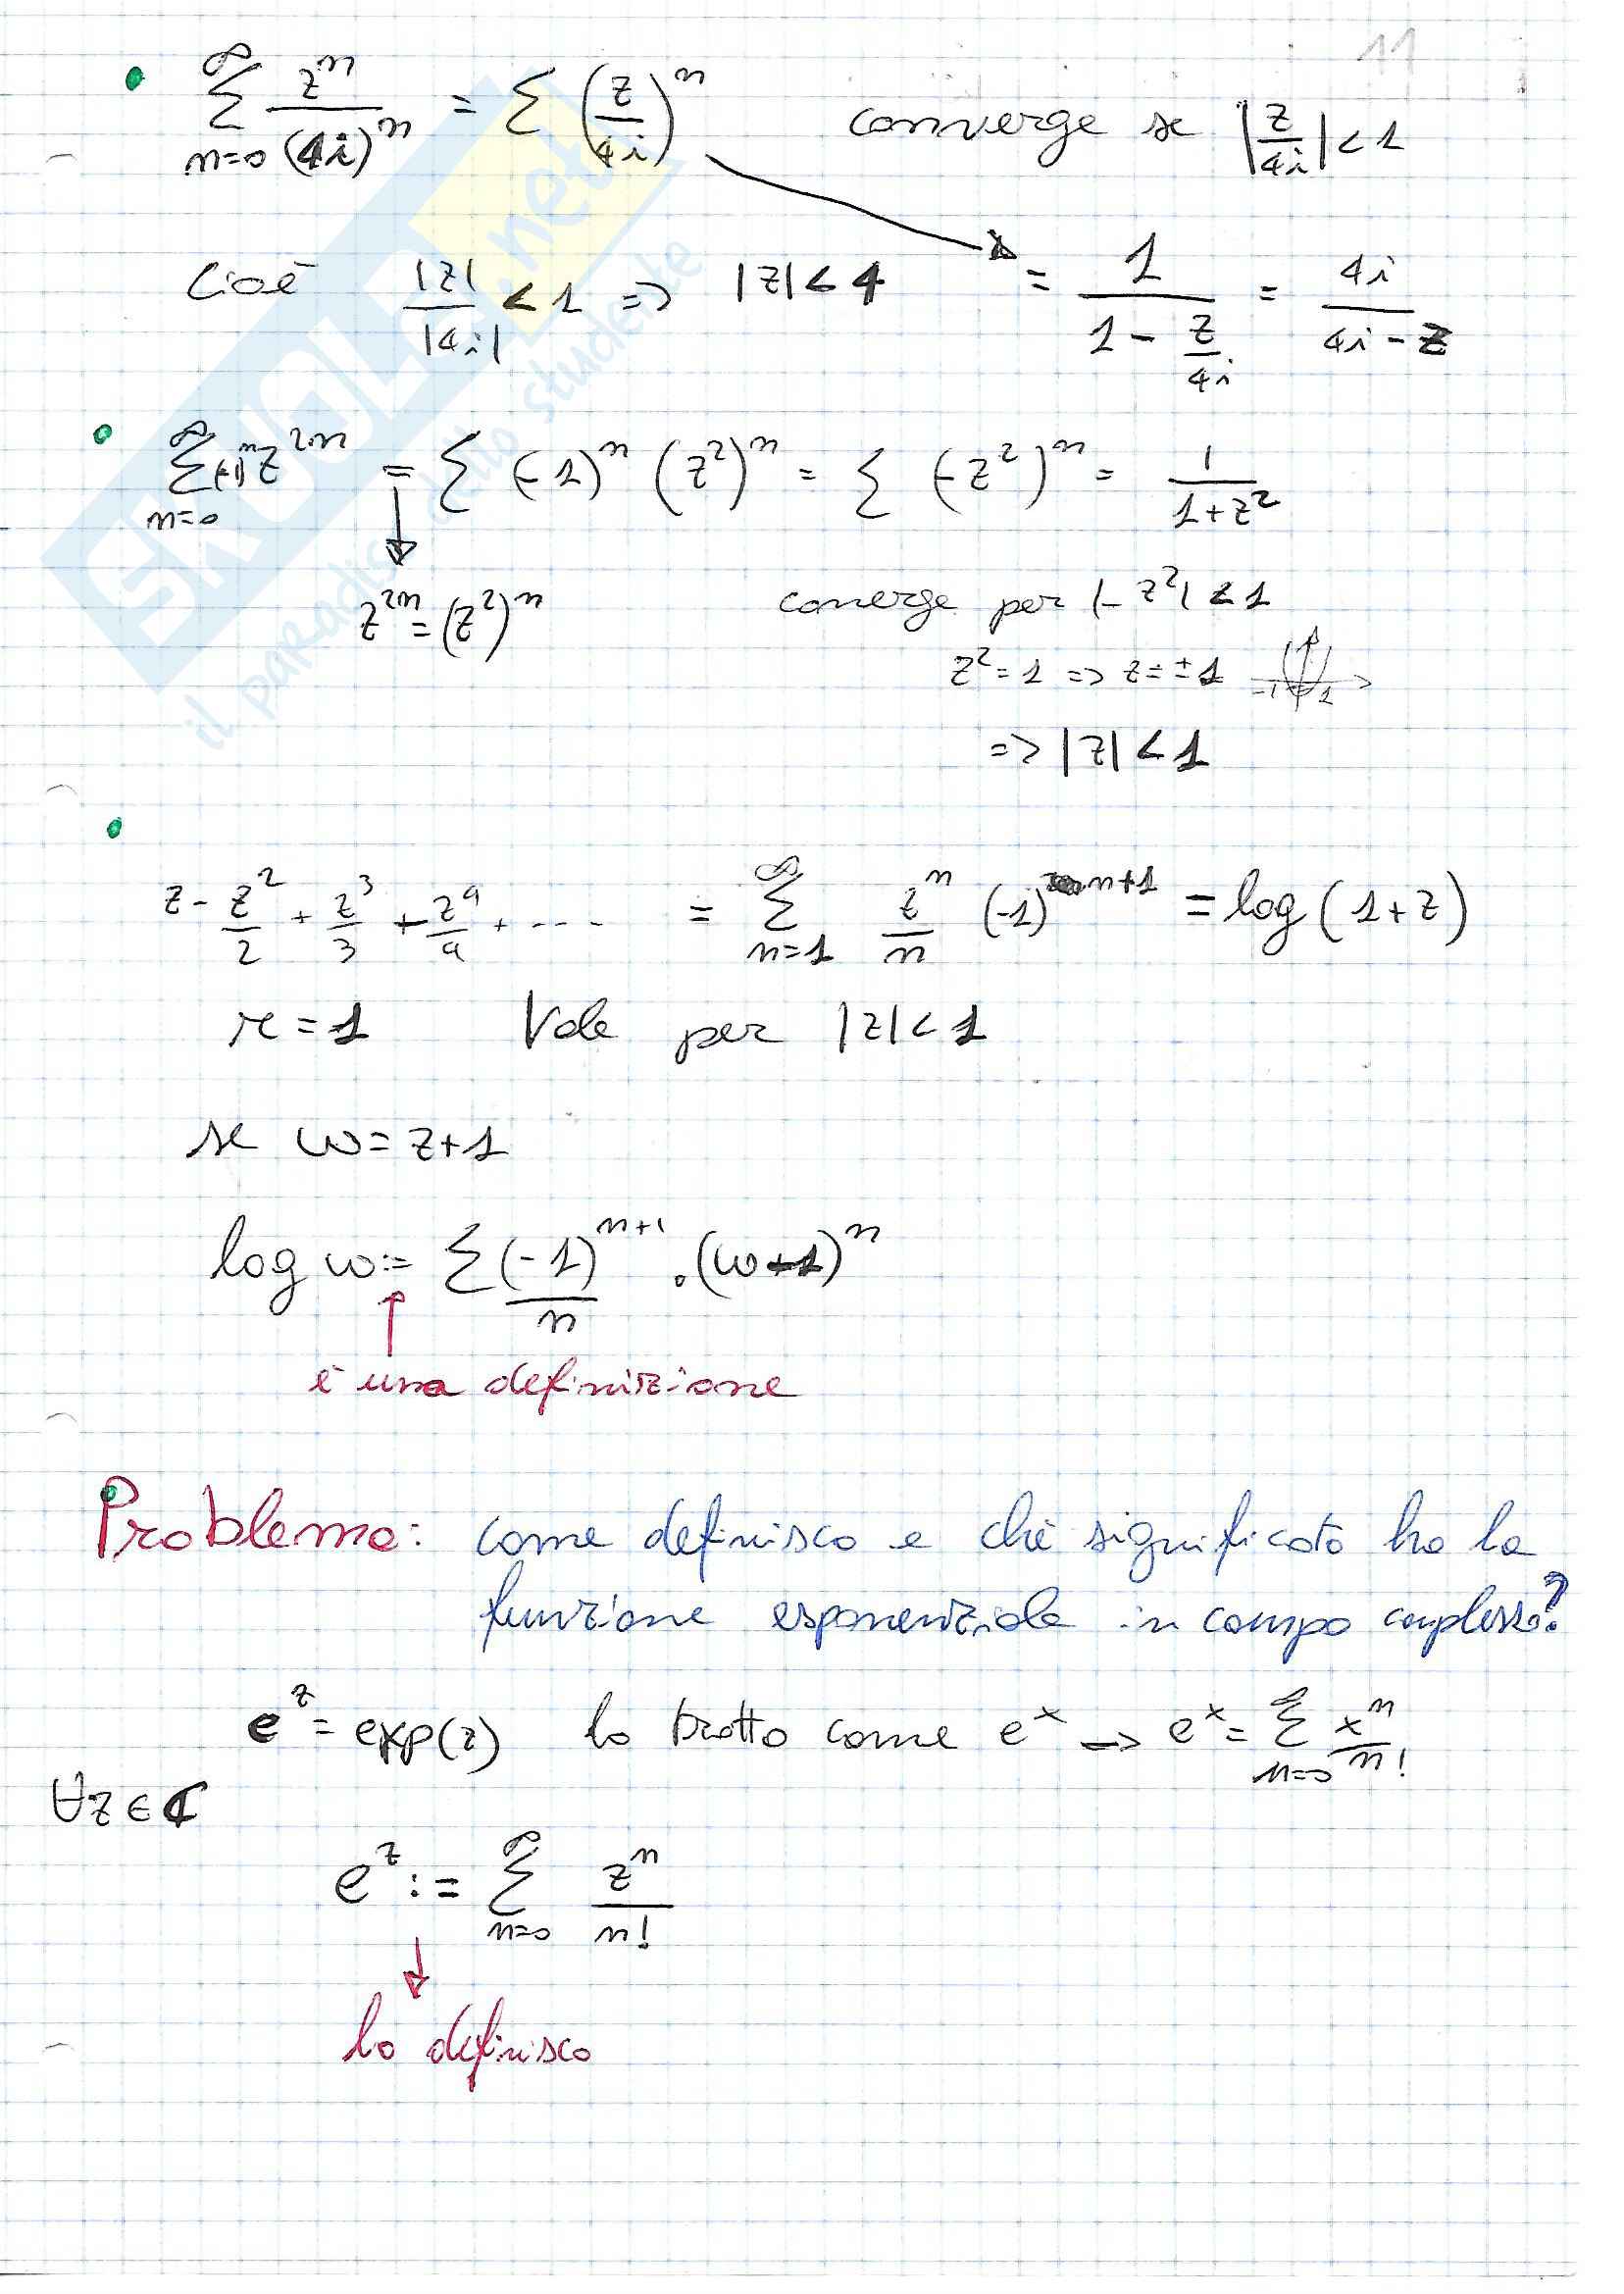 11
• ∑_{n=0}^{∞} z^n/(4i)^n = ∑ (z/4i)^n converge se |z/4i| < 1
Cioè |z|/|4i| < 1 => |z| < 4 = 1/(1 - z/4i) = 4i/(4i - z)
• ∑_{n=0}^{∞} (-1)^n z^{2n} = ∑ (-1)^n (z^2)^n = ∑ (-z^2)^n = 1/(1+z^2)
z^{2n} = (z^2)^n converge per |-z^2| < 1
z^2 = 1 => z = ±1 -1 1
=> |z| < 1
• z - z^2/2 + z^3/3 + z^4/4 + .... = ∑_{n=1}^{∞} z^n/n (-1)^{n+1} = log(1+z)
r = 1 Vale per |z| < 1
se w = z+1
log w := ∑ (-1)^{n+1}/n · (w-1)^n
è una definizione
Problema: come definisco e che significato ha la
funzione esponenziale in campo complesso?
e^z = exp(z) lo tratto come e^x -> e^x = ∑_{n=0}^{∞} x^n/n!
∀z∈ℂ
e^z := ∑_{n=0}^{∞} z^n/n!
lo definisco
SKUOLA.net
il paradiso dello studente